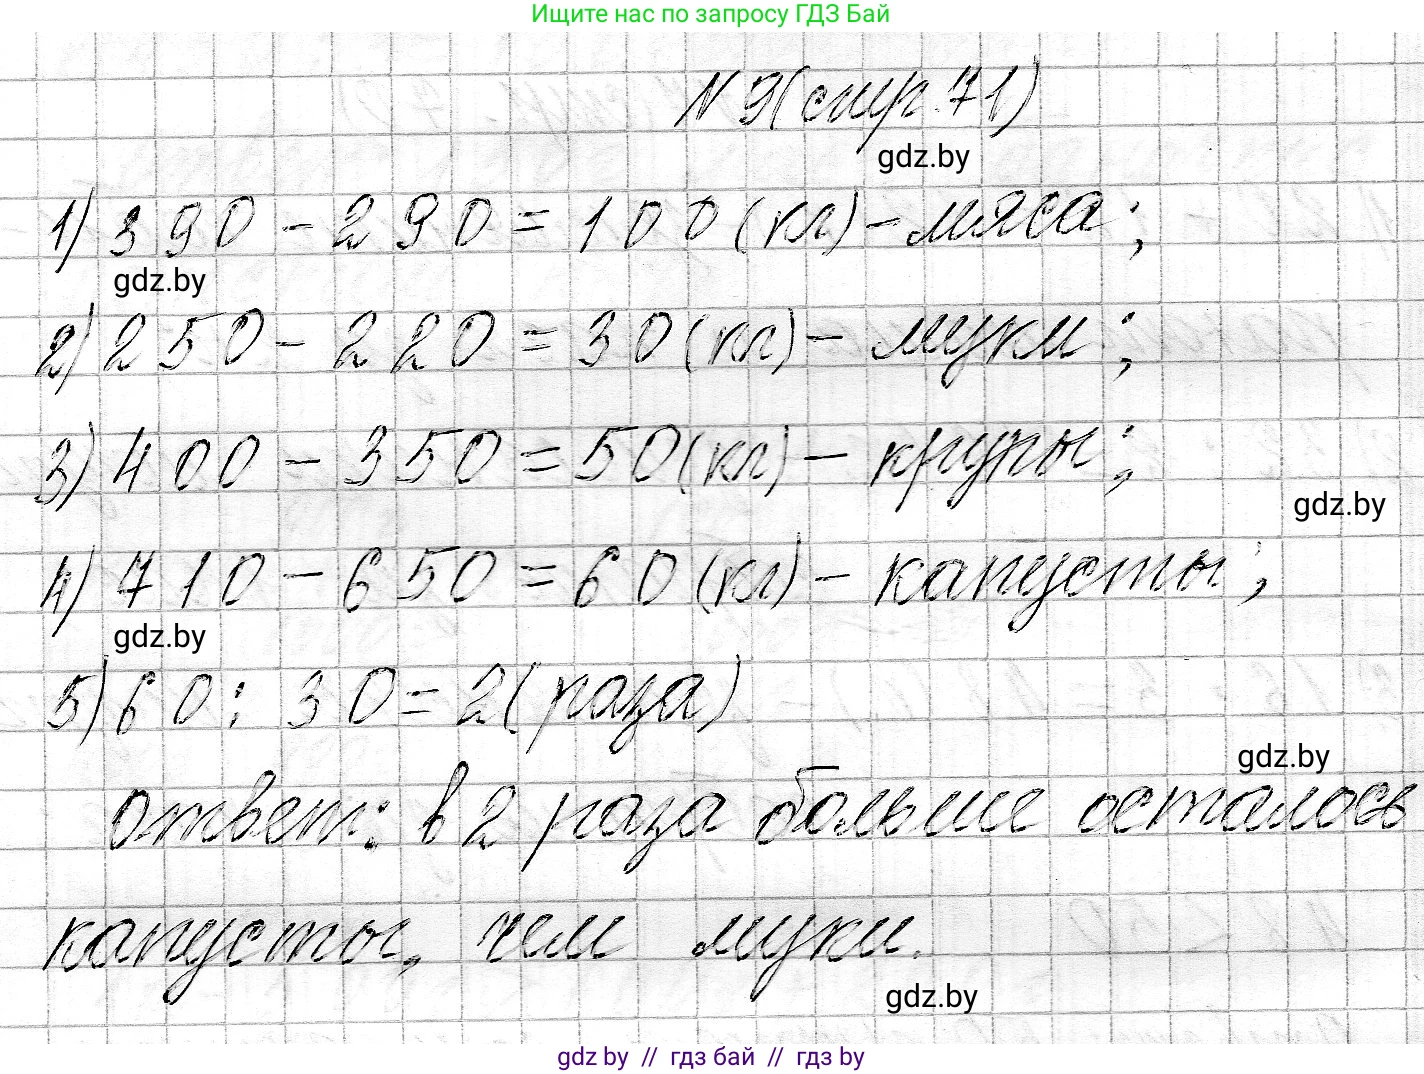 Ищите нас по запросу ГДЗ Бай
№ 9 (стр. 71)
gdz.by
1) 390 - 290 = 100 (кг) - мяса;
gdz.by
2) 250 - 220 = 30 (кг) - муки;
3) 400 - 350 = 50 (кг) - крупы;
gdz.by
4) 710 - 650 = 60 (кг) - капусты;
gdz.by
5) 60 : 30 = 2 (раза)
gdz.by
Ответ: в 2 раза больше осталось
капусты, чем муки.
gdz.by
gdz by // гдз бай // гдз by